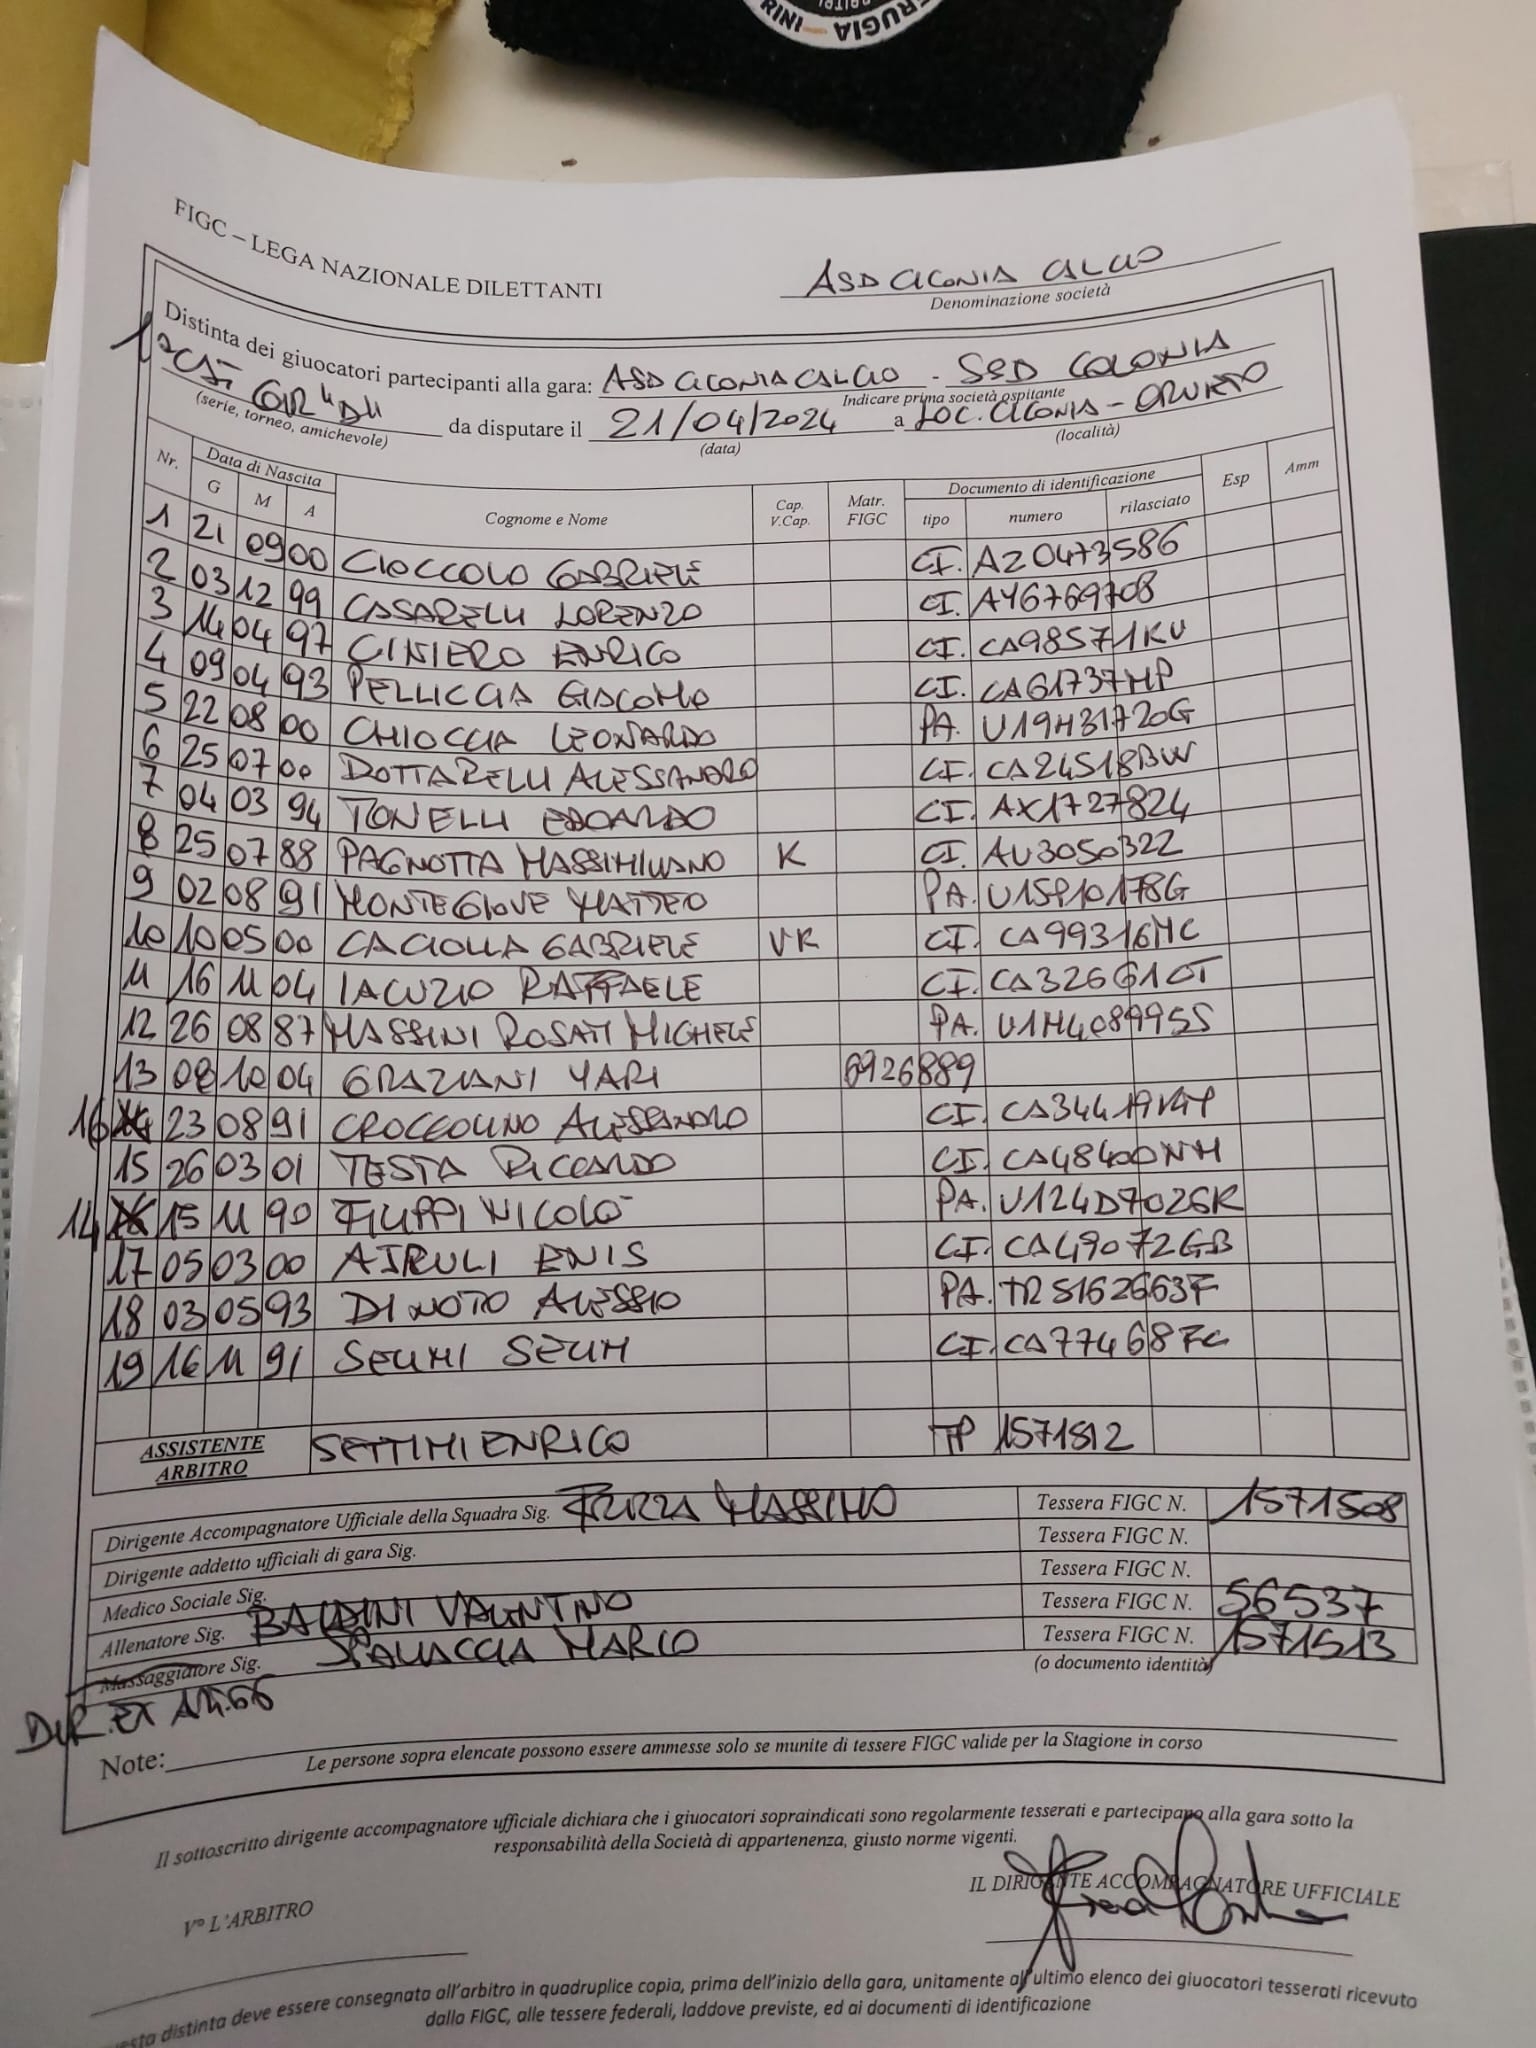 ERUGIA
RINI
FIGC – LEGA NAZIONALE DILETTANTI
ASD CICONIA CALCIO
Denominazione società
Distinta dei giuocatori partecipanti alla gara: ASD CICONIA CALCIO - SSD COLONIA
Indicare prima società ospitante
1ª CAT GIR "D" da disputare il 21/04/2024 a LOC. CICONIA - ORVIETO
(serie, torneo, amichevole) (data) (località)
Nr. Data di Nascita G M A Cognome e Nome Cap. V.Cap. Matr. FIGC Documento di identificazione tipo numero rilasciato Esp Amm
1 21 09 00 CIOCCOLO GABRIELE CI. AZ0473586
2 03 12 99 CASARELLI LORENZO CI. AY6769708
3 14 04 97 CINIERO ENRICO CI. CA98571KU
4 09 04 93 PELLICCIA GIACOMO CI. CA61737MP
5 22 08 00 CHIOCCIA LEONARDO PA. U19H31720G
6 25 07 00 DOTTARELLI ALESSANDRO CI. CA24518BW
7 04 03 94 TONELLI EDOARDO CI. AX1727824
8 25 07 88 PAGNOTTA MASSIMILIANO K CI. AU3050322
9 02 08 91 MONTEGIOVE MATTEO PA. U15P10178G
10 10 05 00 CACIOLLA GABRIELE VK CI. CA99316MC
11 16 11 04 IACUZIO RAFFAELE CI. CA32661CT
12 26 08 87 MASSINI ROSATI MICHELE PA. U1M408995S
13 08 10 04 GRAZIANI YARI 6926889
16 23 08 91 CROCCOLINO ALESSANDRO CI.
15 26 03 01 TESTA RICCARDO CI. CA48400NM
14 15 11 90 FILIPPI NICOLO' PA. U124D7026R
17 05 03 00 AIRULI ENIS CI. CA49072GB
18 03 05 93 DI NOTO ALESSIO PA. TR5162663F
19 16 11 91 SELIMI SELIM CI. CA77468FC
ASSISTENTE ARBITRO SETTIMI ENRICO TP 1571512
Dirigente Accompagnatore Ufficiale della Squadra Sig. MASSIMO Tessera FIGC N. 1571508
Dirigente addetto ufficiali di gara Sig. Tessera FIGC N.
Medico Sociale Sig. Tessera FIGC N.
Allenatore Sig. BALDINI VALENTINO Tessera FIGC N. 56537
Massaggiatore Sig. SPALLACCIA MARCO Tessera FIGC N. 1571513
(o documento identità)
DIR. EX ART. 66
Note:
Le persone sopra elencate possono essere ammesse solo se munite di tessere FIGC valide per la Stagione in corso
Il sottoscritto dirigente accompagnatore ufficiale dichiara che i giuocatori sopraindicati sono regolarmente tesserati e partecipano alla gara sotto la
responsabilità della Società di appartenenza, giusto norme vigenti.
IL DIRIGENTE ACCOMPAGNATORE UFFICIALE
V° L'ARBITRO
uesta distinta deve essere consegnata all'arbitro in quadruplice copia, prima dell'inizio della gara, unitamente all'ultimo elenco dei giuocatori tesserati ricevuto
dalla FIGC, alle tessere federali, laddove previste, ed ai documenti di identificazione